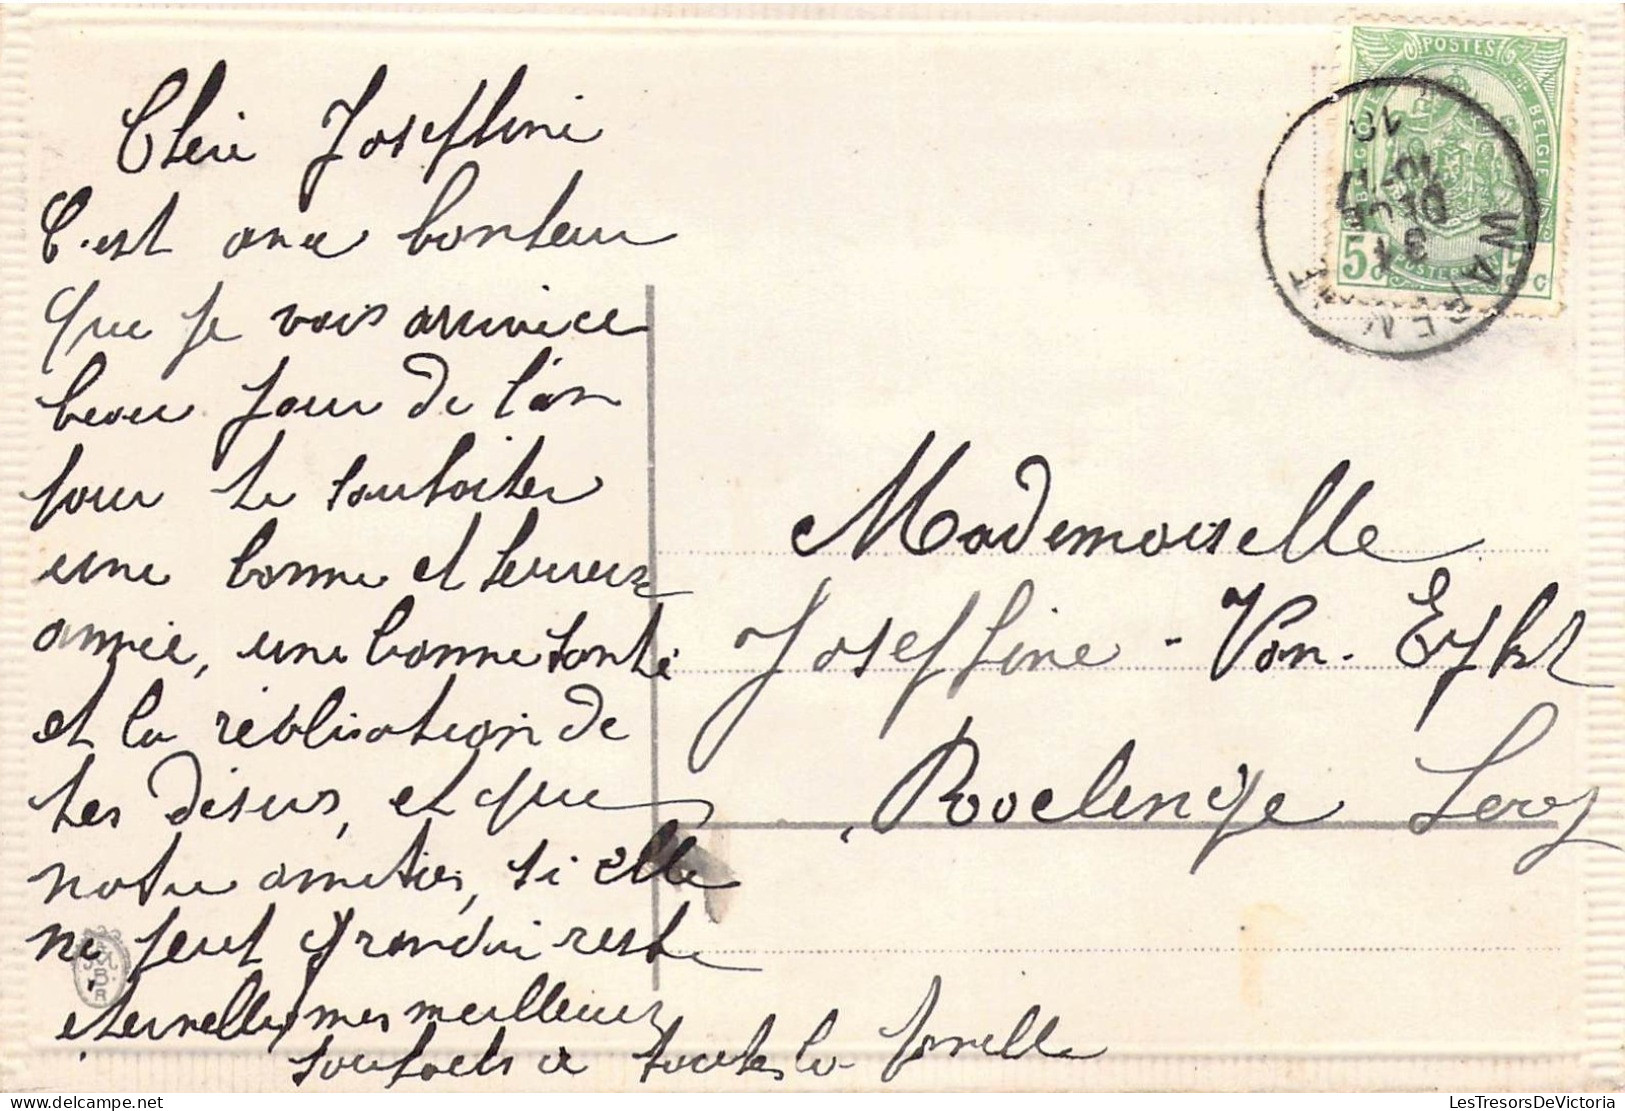 Chère Joseffine
C'est avec bonheur
que je vois arriver ce
beau jour de l'an
pour te souhaiter
une bonne et heureuse
année, une bonne santé
et la réalisation de
tes désirs, et que
notre amitiés, si elle
ne peut grandir reste
éternelle, mes meilleurs
souhaits a toutes la famille
POSTES
BELGIE
5c
5c
WAREMME
31
DECE
10-11
10
Mademoiselle
Joseffine - Van. Eyht
Roclenge Lery
LesTresorsDeVictoria
www.delcampe.net/stores/LesTresorsDeVictoria